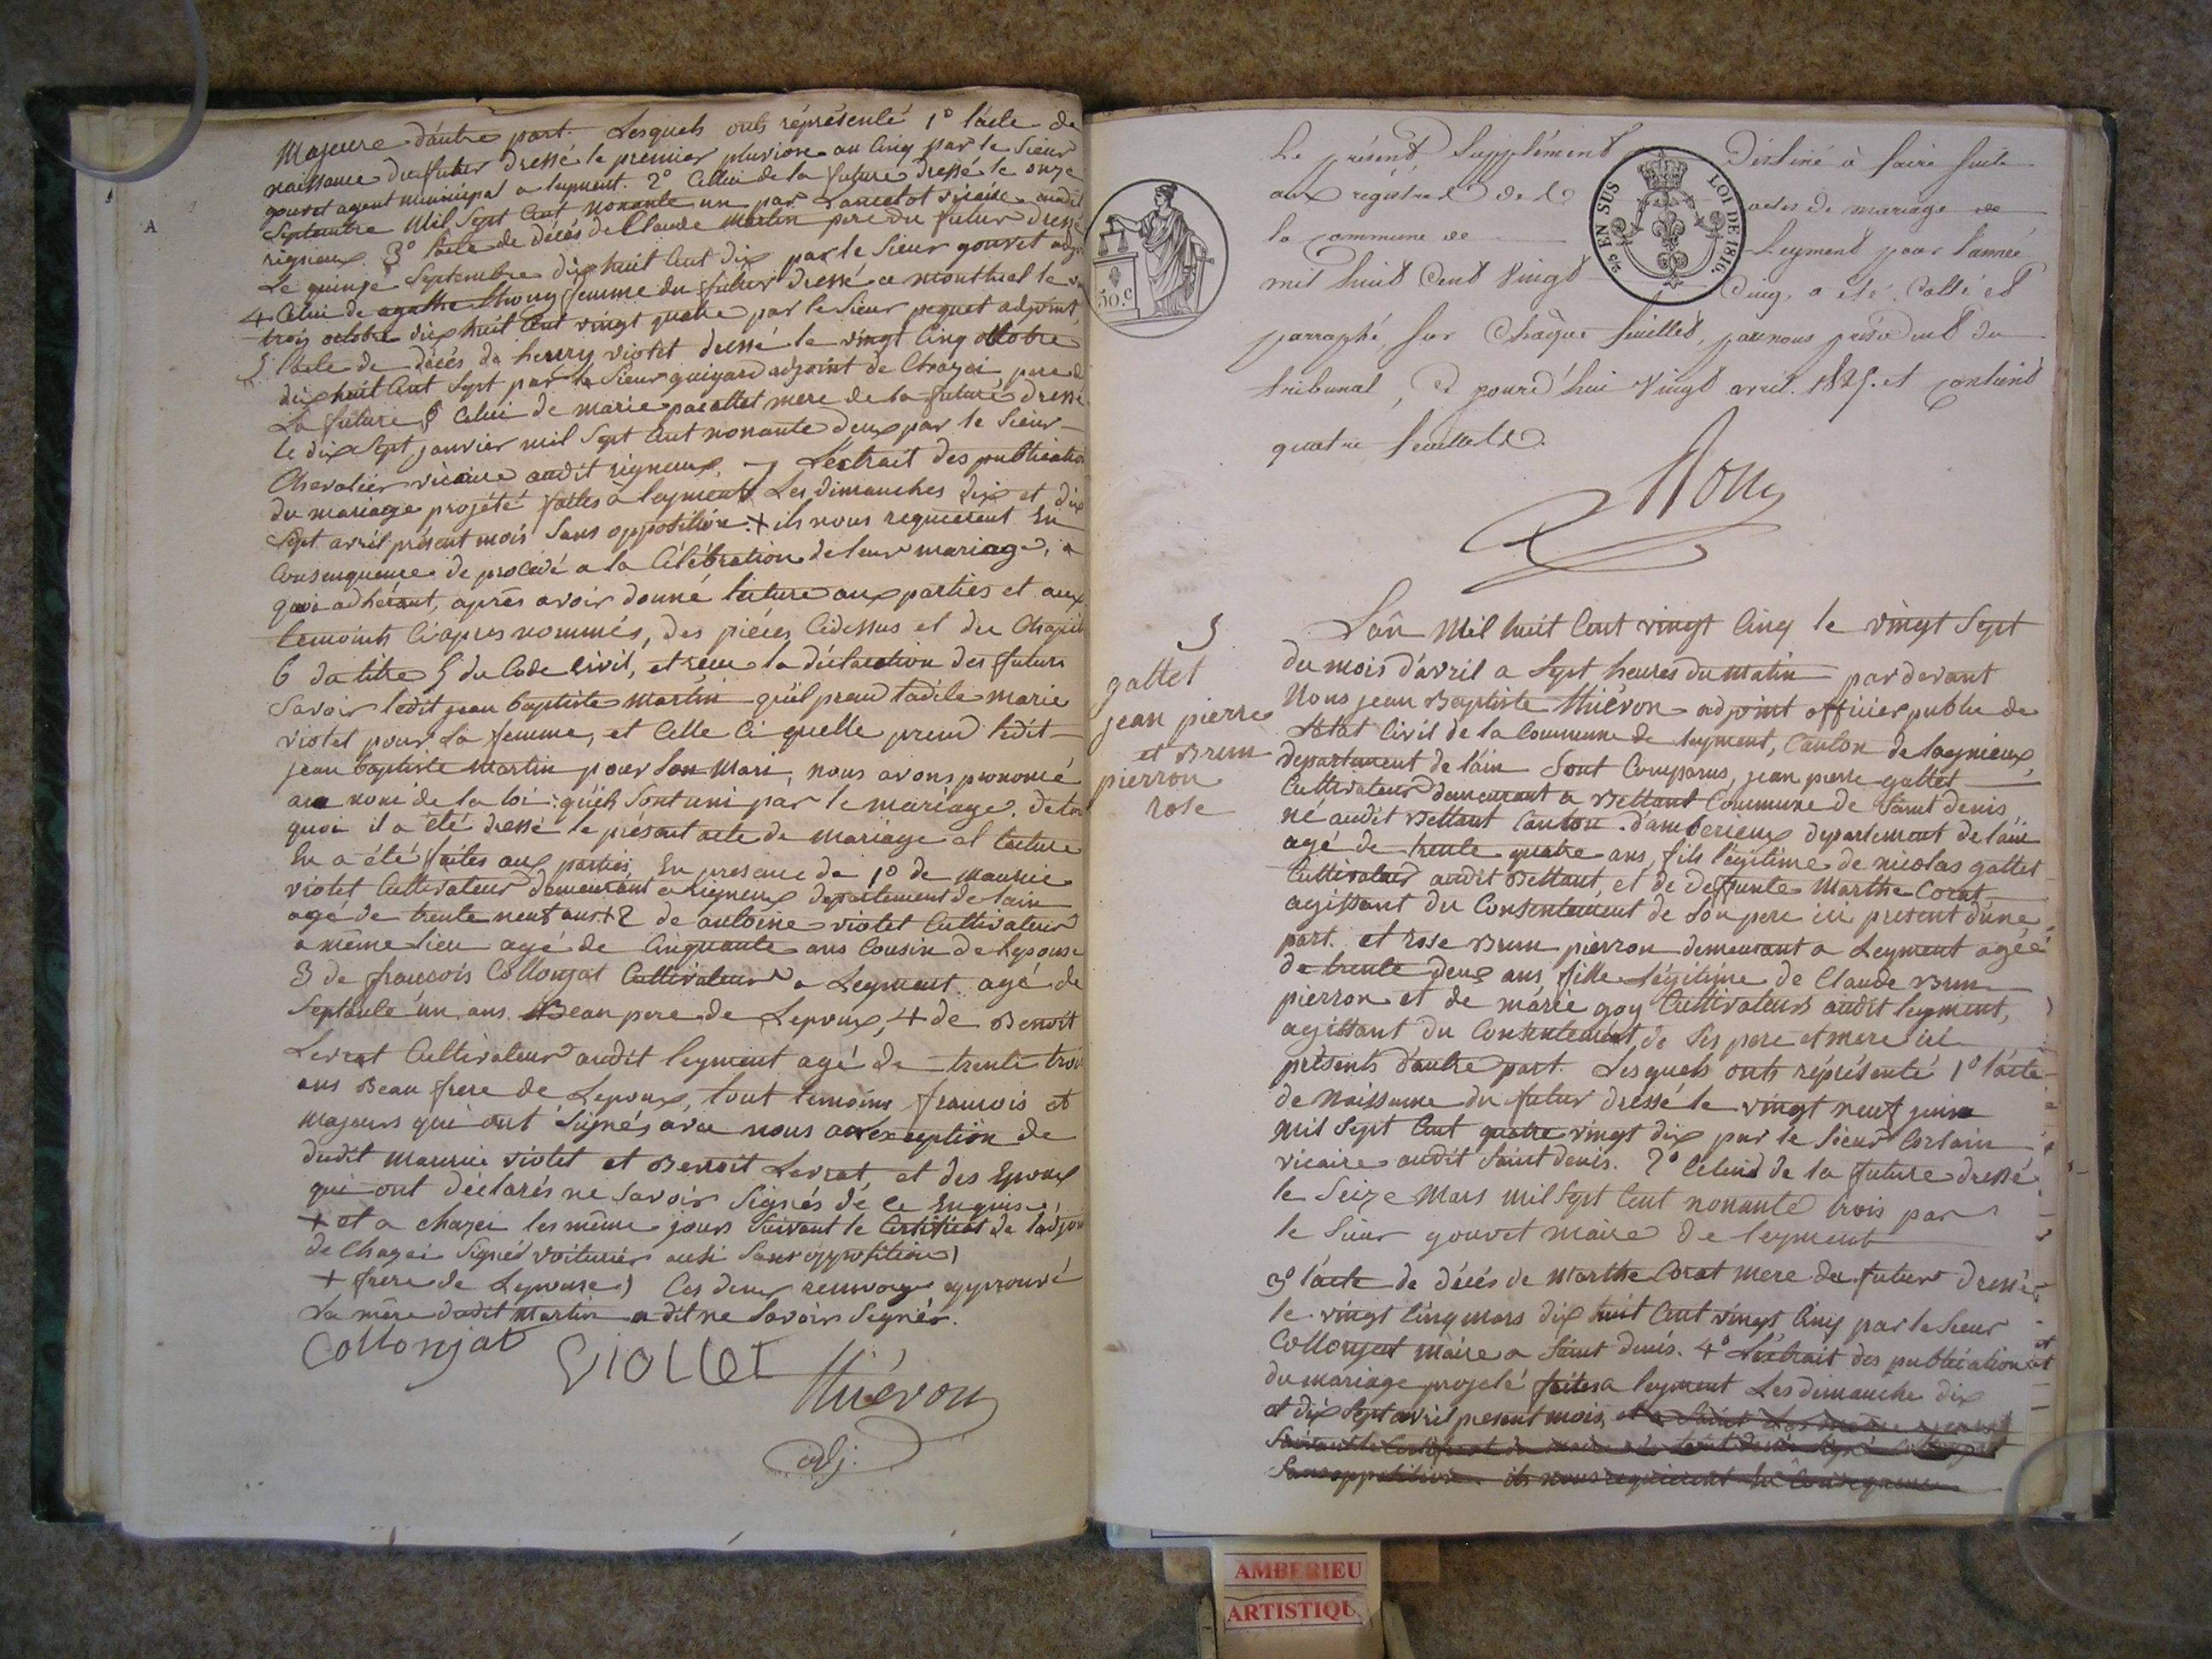 Majeure d'autre part. Lesquels onts réprésenté 1° l'acte de
naissance du futur dressé le premier pluviose an Cinq par le Sieur
gouvet agent municipal a leyment. 2° Cellui de la future dressé le onze
Septembre Mil Sept Cent nonante un par Lancelot vicaire audit
rigneux. 3° l'acte de décés de Claude Martin pere du futur dressé
Le quinze Septembre dix huit Cent dix par le Sieur gouvet adjt
4 Celui de agathe thouy femme du futur dressé a montluel le
trois octobre dix huit Cent vingt quatre par le Sieur peguet adjoint
5 l'acte de décés de henry violet dressé le vingt Cinq octobre
dix huit Cent Sept par le Sieur guigard adjoint de Chazei pere de
La future 6 Celui de marie pacattet mere de la future dressé
le dix Sept janvier mil Sept Cent nonante deux par le Sieur
Chevalier vicaire audit rigneux. 7 L'extrait des publication
du mariage projété faites a leyment Les dimanches dix et dix
Sept avril présent mois Sans opposition + ils nous requierent En
Consequence de procédé a la Célébration de leur mariage, a
quoi adhérant, aprés avoir donné lecture aux parties et aux
temoints Ci apres nommés, des piéces Cidessus et du Chapit
6 du titre 5 du Code Civil, et reçu la déclaration des futurs
Savoir ledit jean baptiste martin qu'il prend ladite marie
violet pour Sa femme, et Celle Ci quelle prend ledit
jean baptiste Martin pour Son Mari, nous avons prononcé
au nom de la loi qu'ils Sont uni par le mariage. de tout
quoi il a été dressé le présent acte de mariage et lecture
En a été faites aux parties En presence de 1° de Maurice
violet Cultivateur demeurant a rigneux departement de lain
agé de trente neuf ans + 2 de antoine violet Cultivateur
a même lieu agé de Cinquante ans Cousin de lepouse
3 de françois Collonjat Cultivateur a Leyment agé de
Septante un ans Beau pere de Lepoux, 4 de Benoit
Levrat Cultivateur audit leyment agé de trente trois
ans Beau frere de Lepoux, tout temoins françois et
Majeurs qui ont Signés avec nous a lexception de
dudit Maurice violet et Benoit Levrat et des Epoux
qui ont déclarés ne Savoir Signés de ce Enquis
+ et a chazei les même jours Suivant le Certificat de l'adjoin
de Chazei Signé voiturier aussi Sans opposition)
+ frere de Lepouse) Ces deux renvoye approuvé
La mère dudit Martin a dit ne Savoir Signér.
Collonjat Viollet Thiévon
adj.
Le présent Supplément Destiné à faire suite
aux régistres de l actes de mariage de
la commune de Leyment pour l'année
mil huit Cent Vingt Cinq, a été Cotté et
parraphé sur Chaque feuillet, par nous président du
tribunal, Ce jourd'hui Vingt avril 1825 et contient
quatre feuillets.
50.C
25.C EN SUS LOI DE 1816.
5
gattet
jean pierre
et Brun
pierron
rose
L'an Mil huit Cent vingt Cinq le vingt Sept
du mois d'avril a Sept heures du matin pardevant
Nous jean Baptiste Thiévon adjoint officier public de
l'etat Civil de la Commune de leyment, Canton de lagnieux,
departement de l'ain Sont Comparus, jean pierre gattet
Cultivateur demeurant a Bettant Commune de Saint denis
né audit Bettant Canton d'amberieux departement de l'ain
agé de trente quatre ans, fils légitime de nicolas gattet
Cultivateur audit Bettant, et de deffunte Marthe Corat
agissant du Consentement de Son pere ici present d'une
part. et rose Brun pierron demeurant a Leyment agée
de trente deux ans fille légitime de Claude Brun
pierron et de marie goy Cultivateurs audit leyment,
agissant du Consentement de Ses pere et mere ici
présents d'autre part. Lesquels onts réprésenté 1° l'acte
de Naissance du futur dressé le vingt neuf juin
Mil Sept Cent quatre vingt dix par le Sieur Cortain
vicaire audit Saint denis. 2° Celui de la future dressé
le Seize Mars Mil Sept Cent nonante trois par
le Sieur gouvet maire de leyment
3° l'acte de décés de Marthe Corat mere du futur dressé
le vingt Cinq mars dix huit Cent vingt Cinq par le Sieur
Collonjat maire a Saint denis. 4° L'extrait des publication
du mariage projété faites a leyment Les dimanche dix
et dix Sept avril present mois, et a Saint
Suivant le Certificat du maire
Sans opposition. ils nous requierent En Consequence
AMBERIEU
ARTISTIQU